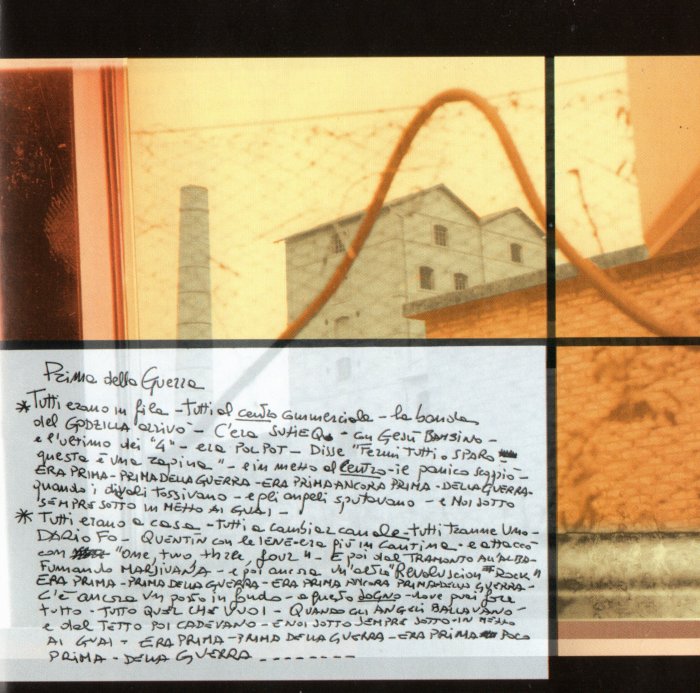 Prima della Guerra
* Tutti erano in fila - Tutti al centro commerciale - la banda
del GODZILLA arrivò - C'era SUSIE Q. - con Gesù BAMBINO -
e l'ultimo dei "4" - era POL POT - Disse "Fermi tutti o SPARO -
questa è una rapina" - e in mezzo al centro - il panico scoppiò -
ERA PRIMA - PRIMA DELLA GUERRA - ERA PRIMA ANCORA PRIMA - DELLA GUERRA -
quando i diavoli tossivano - e gli angeli sputavano - e NOI SOTTO
SEMPRE SOTTO IN MEZZO AI GUAI -
* Tutti erano a casa - Tutti a cambiar canale - tutti tranne uno -
DARIO FO - QUENTIN con le IENE - era giù in Cantina - e attaccò
con "one, two, three, four" - E poi dal TRAMONTO ALL'ALBA -
Fumando MARIJUANA - e poi ancora un'altra "Revoluscion Rock"
ERA PRIMA - PRIMA DELLA GUERRA - ERA PRIMA ANCORA PRIMA DELLA GUERRA -
C'è ancora un posto in fondo - a questo SOGNO - dove puoi fare
tutto - TUTTO QUEL CHE VUOI - QUANDO GLI ANGELI BALLAVANO -
e dal TETTO POI CADEVANO - E NOI SOTTO SEMPRE SOTTO - IN MEZZO
AI GUAI - ERA PRIMA - PRIMA DELLA GUERRA - ERA PRIMA POCO
PRIMA - DELLA GUERRA - - - - - - - -